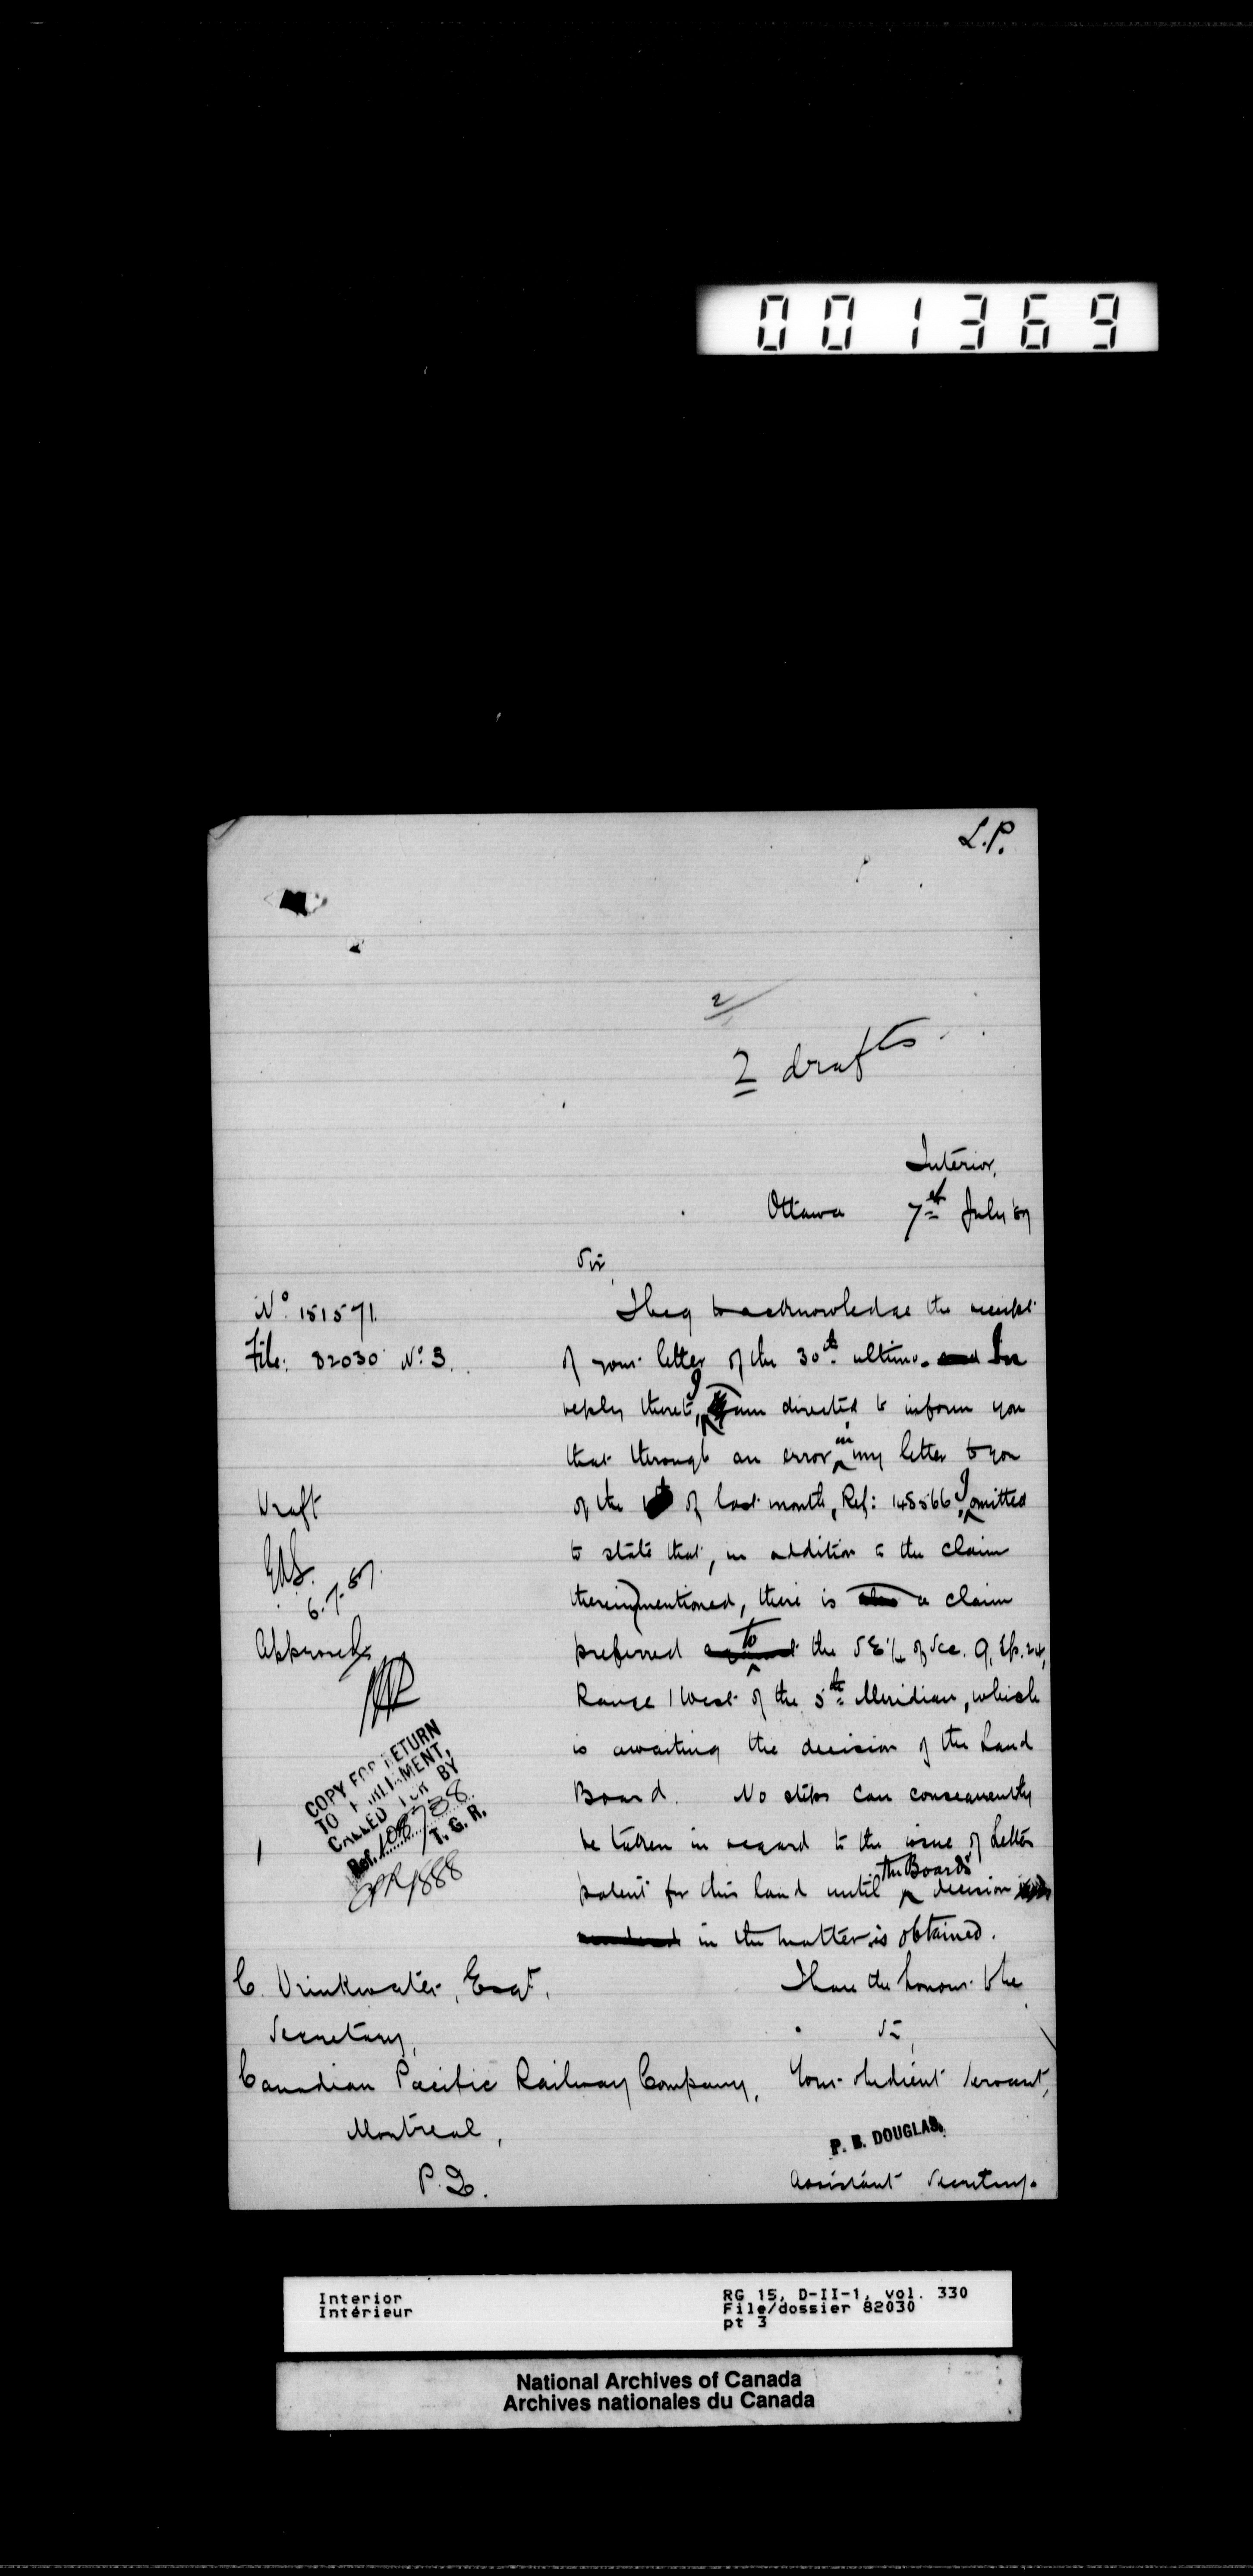 001369
L.P.
2
2 drafts.
Interior,
Ottawa 7th July '87
Sir,
No. 151571.
File: 82030 No. 3.
I beg to acknowledge the receipt
of your letter of the 30th ultimo. and In
reply thereto, I am directed to inform you
that through an error in my letter to you
of the 1st of last month, Ref: 148566 I omitted
to state that, in addition to the claim
therein mentioned, there is also a claim
preferred to the SE 1/4 of Sec. 9, Tp. 24,
Range 1 West of the 5th Meridian, which
is awaiting the decision of the Land
Board. No steps can consequently
be taken in regard to the issue of Letters
patent for this land until the Board's decision
in the matter is obtained.
I have the honour to be
Sir,
Your obedient servant,
P. B. DOUGLAS,
Assistant Secretary.
Draft
6.7.87.
Approved
COPY FOR RETURN
TO PARLIAMENT,
CALLED FOR BY
Ref. 108788
T. G. R.
1888
C. Drinkwater, Esqr.,
Secretary,
Canadian Pacific Railway Company,
Montreal,
P.Q.
Interior
Intérieur
RG 15, D-II-1, vol. 330
File/dossier 82030
pt 3
National Archives of Canada
Archives nationales du Canada